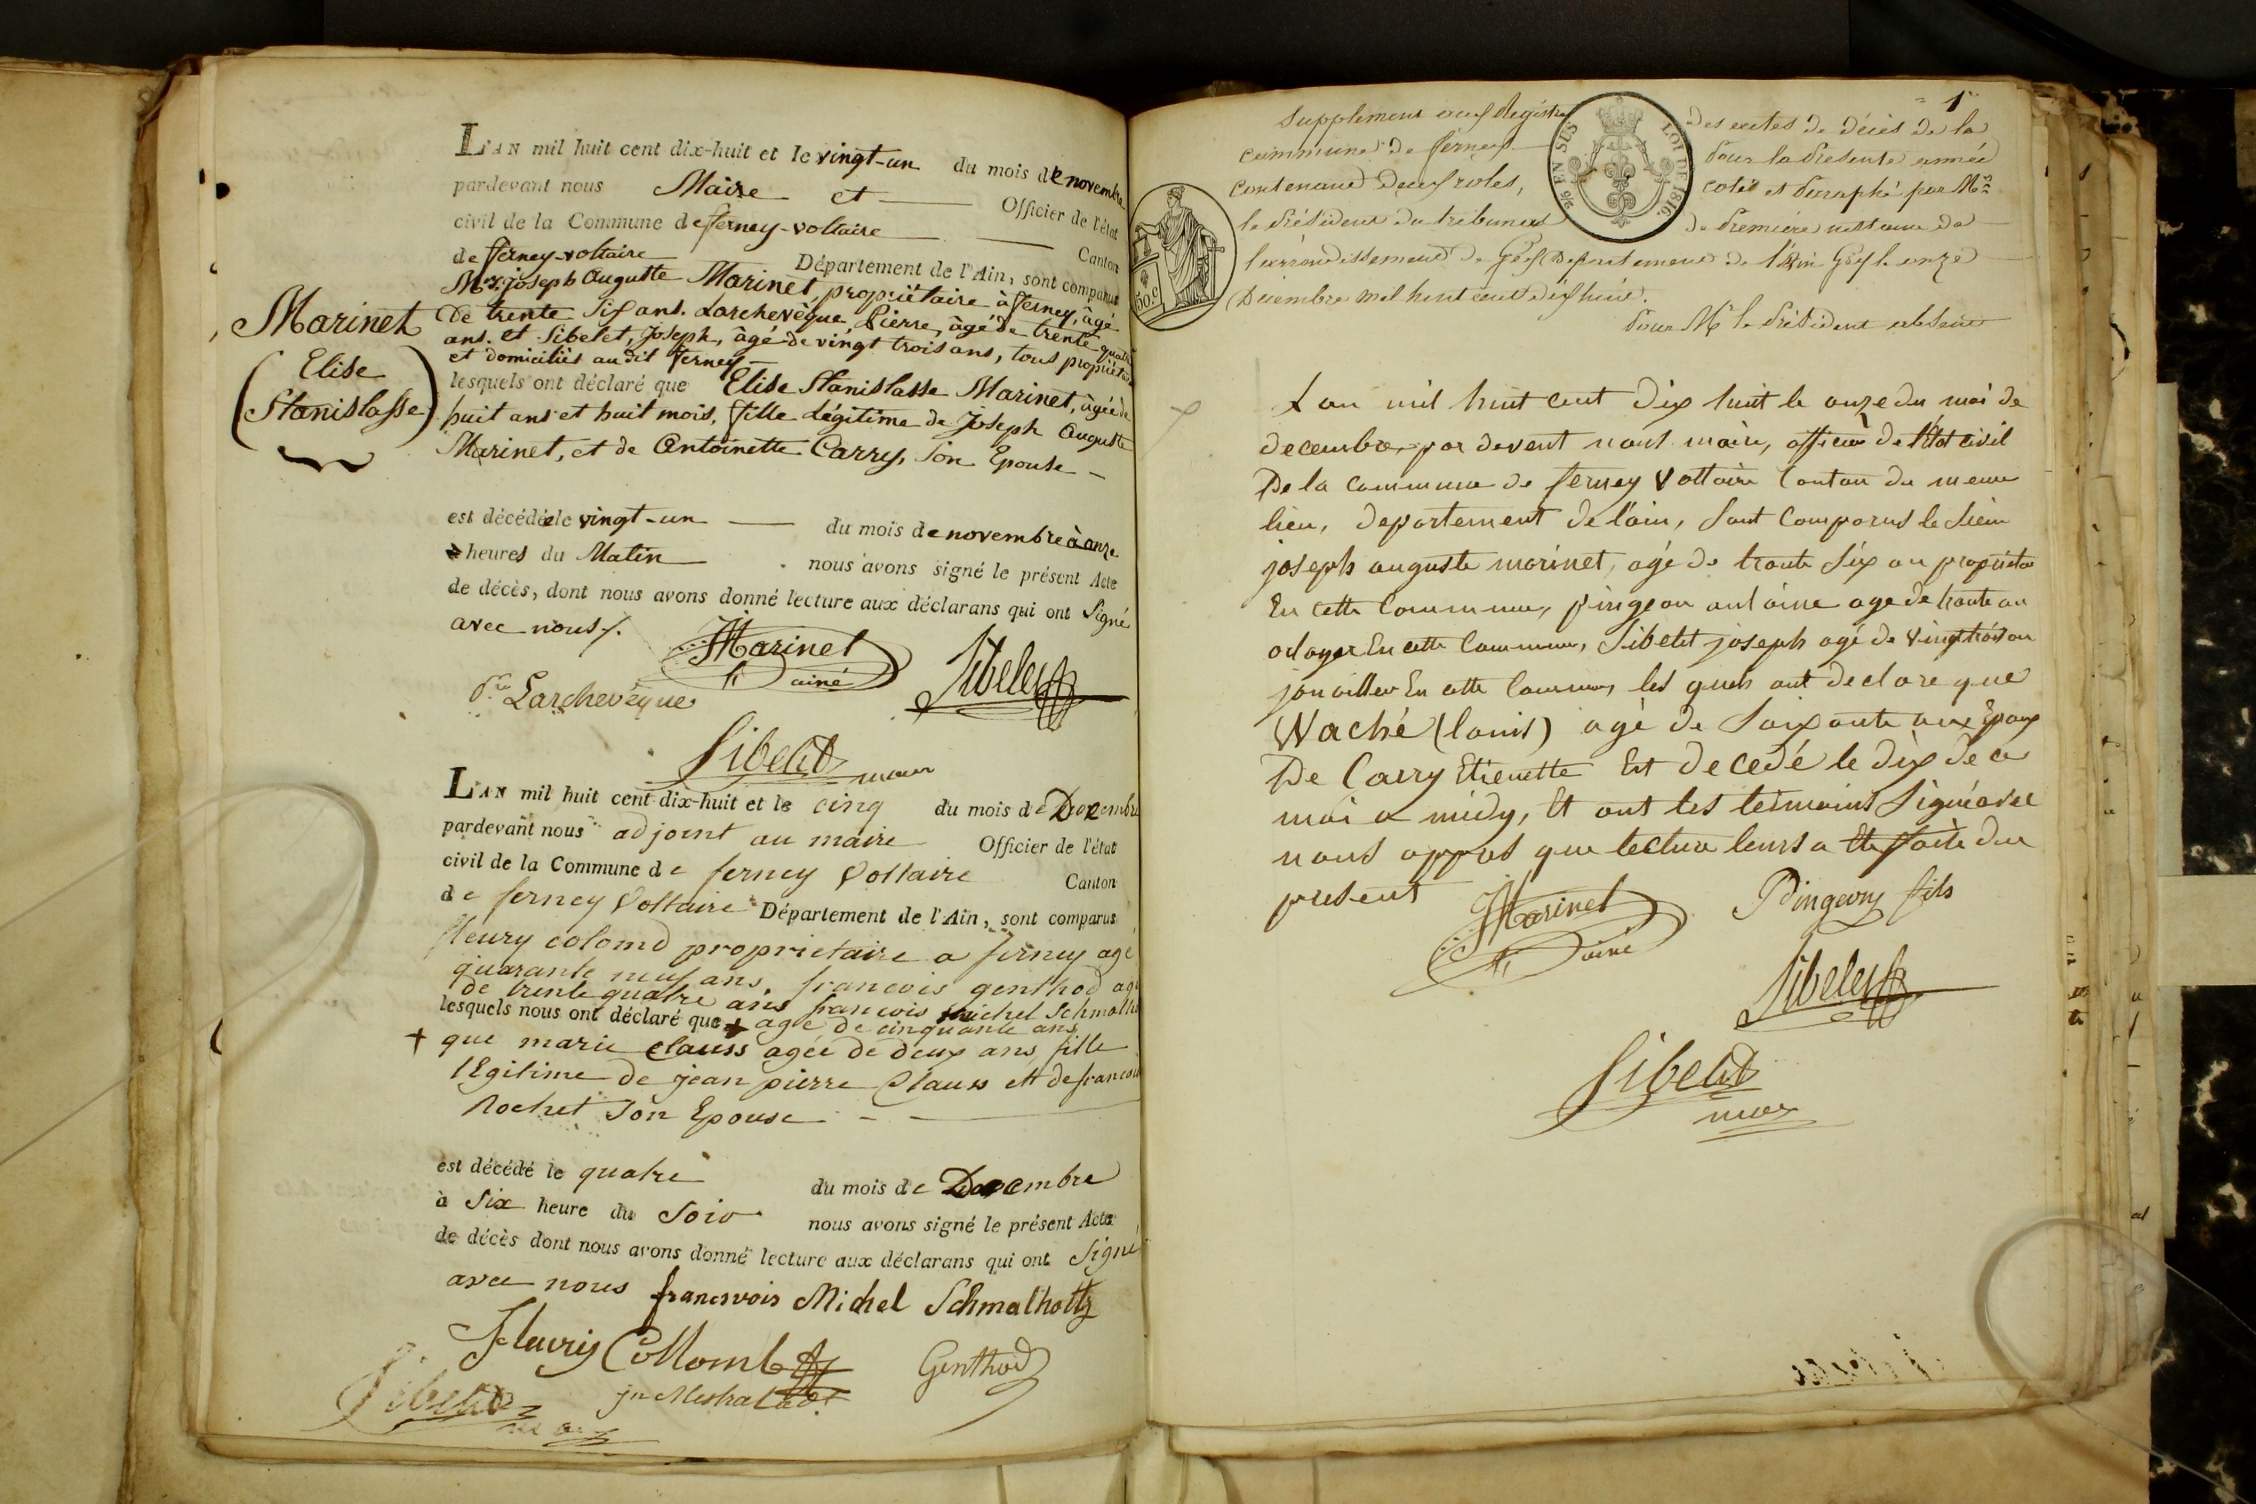 L'AN mil huit cent dix-huit et le vingt-un du mois de novembre
pardevant nous Maire et Officier de l'état
civil de la Commune de ferney-voltaire Canton
de ferney-voltaire Département de l'Ain, sont comparus
Mr. joseph Auguste Marinet propriétaire à ferney, âgé
de trente six ans. Larchevêque Pierre, âgé de trente quatre
ans. et Sibelet, Joseph, âgé de vingt trois ans, tous propriétaires
et domiciliés au dit ferney
Marinet
(Elise
Stanislasse)
lesquels ont déclaré que Elise Stanislasse Marinet, âgée de
huit ans et huit mois, fille légitime de Joseph Auguste
Marinet, et de Antoinette Carry, son Epouse
est décédée le vingt-un du mois de novembre à onze
heures du Matin nous avons signé le présent Acte
de décès, dont nous avons donné lecture aux déclarans qui ont Signé
avec nous
Marinet
ainé
Sibelet
Pre Larchevêque
Sibelet
maire
L'AN mil huit cent dix-huit et le cinq du mois de Decembre
pardevant nous adjoint au maire Officier de l'état
civil de la Commune de ferney Voltaire Canton
de ferney Voltaire Département de l'Ain, sont comparus
fleury colomb proprietaire a ferney agé
quarante neuf ans, francois genthod agé
de trente quatre ans francois michel Schmalholtz
lesquels nous ont déclaré que + age de cinquante ans
+ que marie Clauss agée de deux ans fille
légitime de jean pierre Clauss et de francoise
Rochet son Epouse
est décédé le quatre du mois de Decembre
à Six heure du Soir nous avons signé le présent Acte
de décès dont nous avons donné lecture aux déclarans qui ont Signé
avec nous francivois Michel Schmalholtz
Fleury Collomb
Genthod
Sibelet
1er
Supplement aux Registre des actes de décès de la
commune de ferney pour la presente année
contenant deux roles, coté et paraphé par Mr
le président du tribunal de première instance de
l'arrondissement de Gex Departement de l'Ain Gex le onze
Décembre mil huit cent dix huit.
Pour Mr le Président absent
9/6 EN SUS.
LOI DE 1816.
50.c
L an mil huit cent Dix huit le onze du moi de
decembre, par devent nous maire, officier de l'Etat civil
De la commune de ferney Voltaire Canton du meme
lieu, departement de l'ain, sont comparus le sieur
joseph auguste marinet, agé de trante six an propriétaire
En cette Commune, pingeon antoine age de trante an
En cette Commune, Sibelet joseph agé de vingt trois an
jouaillier En cette Commune, les quels ont declaré que
Waché (louis) agé de Soixante ans Epoux
De Carry Etienette Est decedé le dix de ce
moi a midy, Et ont les temoins Signé avec
nous apprès que lecture leurs a Ete faite du
present
Marinet
ainé
Pingeon fils
Sibelet
Sibelet
maire